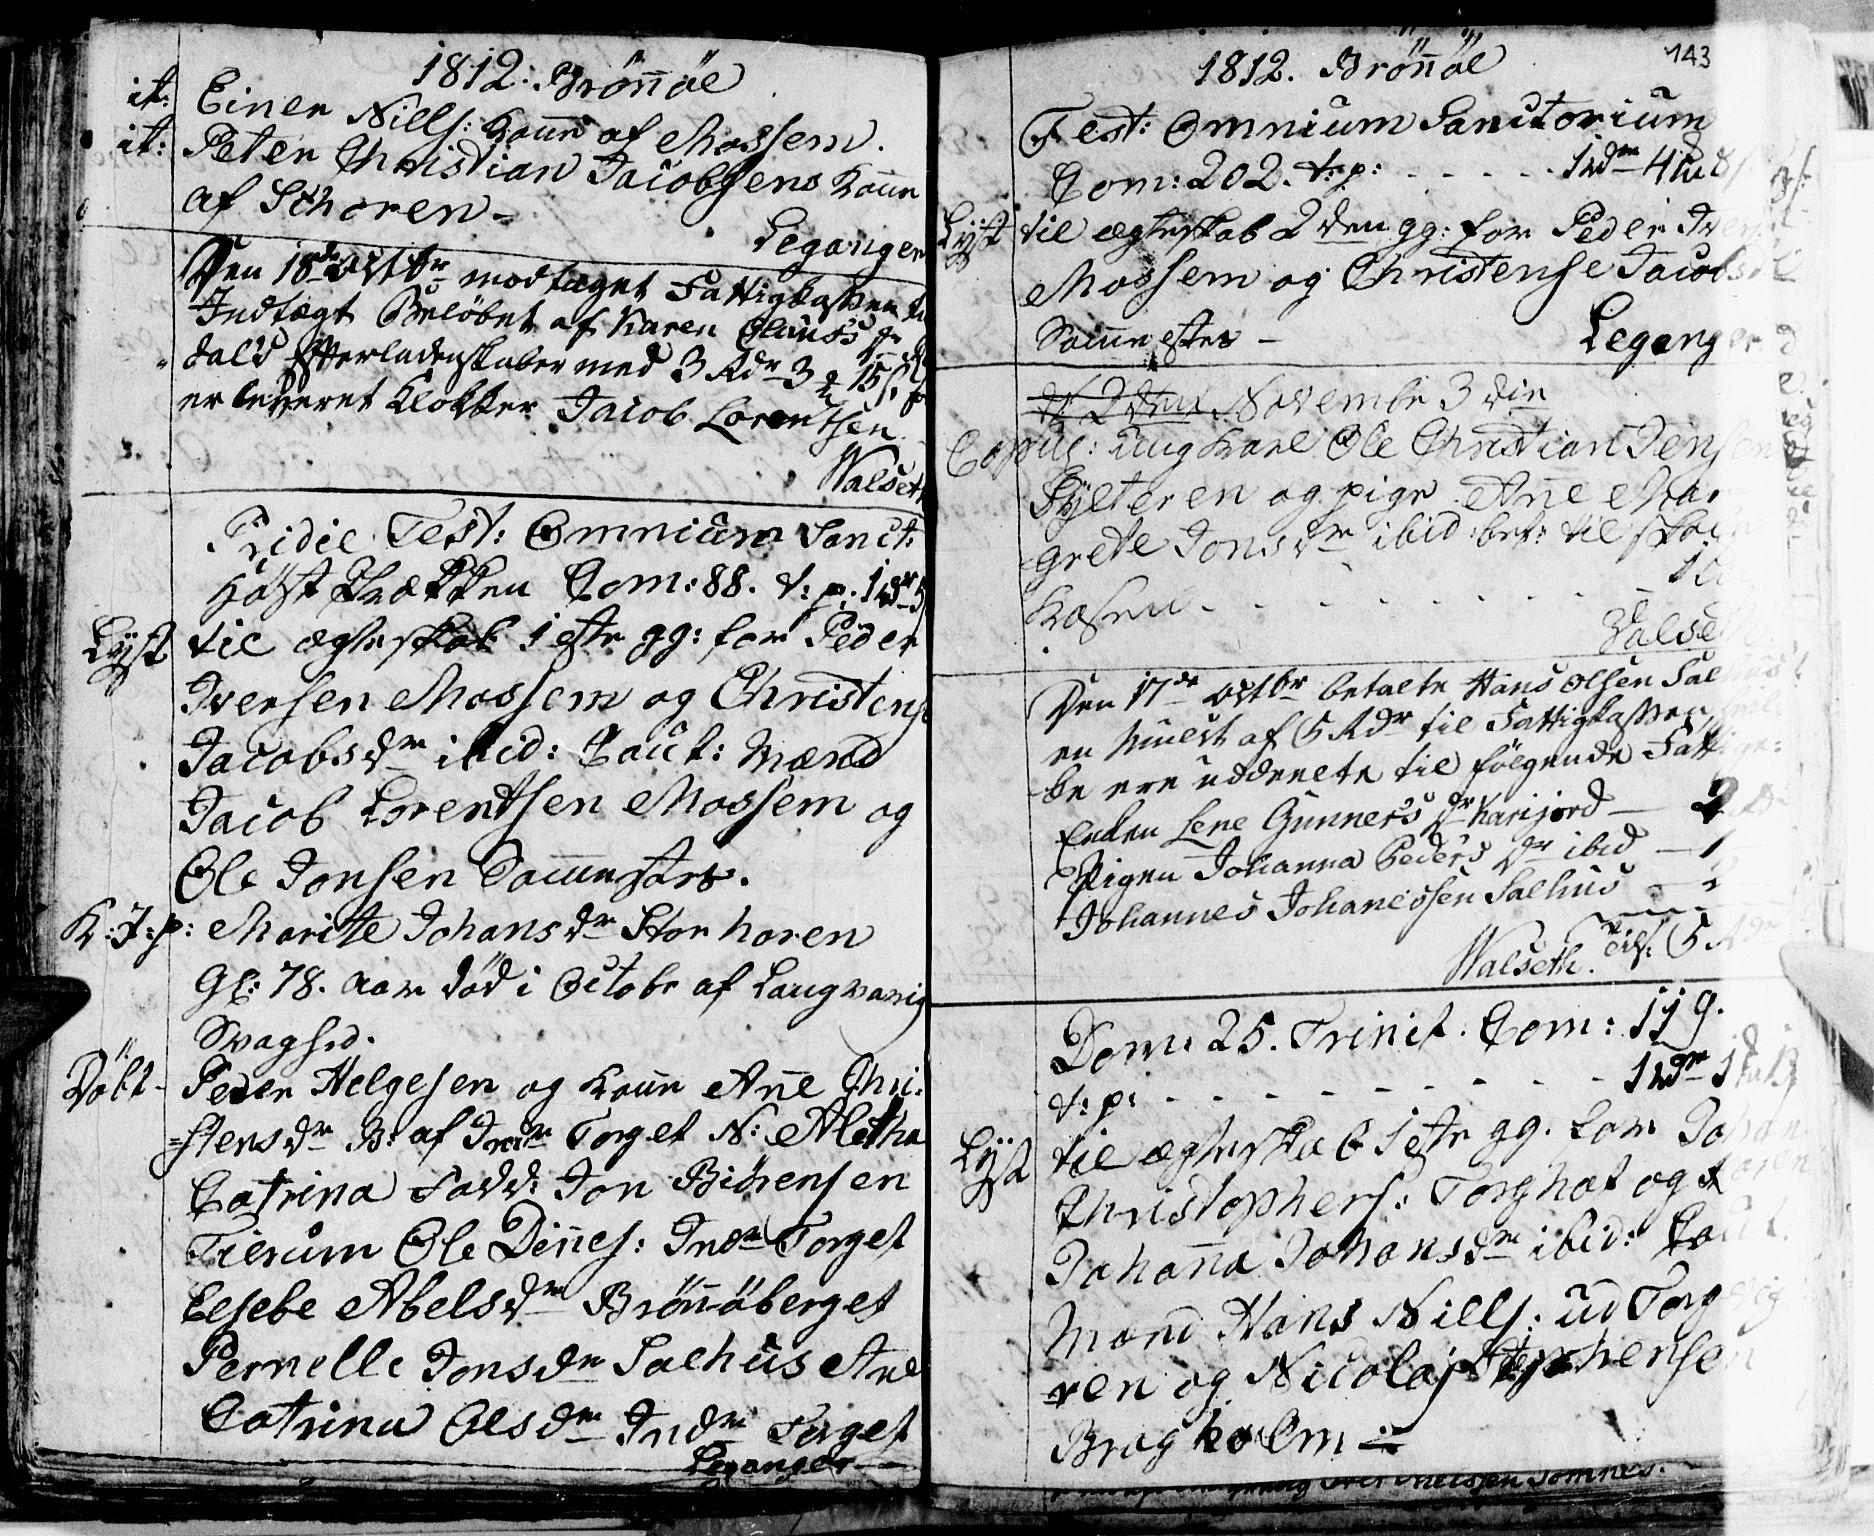 1812: Brönöe
it: Einer Nills: Kone af Mossem.
it: Peter Christian Jacobsens Kone
af Schoren -
Leganger
Den 18de Octbr modtaget Fattigkassen
Indtægt Beløbet af Karen Clauss dr
dals Efterladenskaber med 3 Rdr 3 15 s
er leveret Klokker Jacob Lorentsen
Walseth
Pridie Fest: Omnium Sanct:
Høst Com: 88. t: p: 1 rdr
Lyst til ægteskab 1ste gg: for Peder
Iversen Mossem og Christense
Jacobsdr ibid: Caut: Mænd
Jacob Lorentsen Mossem og
Ole Jonsen Sammestæds.
K: J: p: Marite Johansdr Storhoren
Gl: 78. aar död i Octobr af Langvarig
Svaghed.
Döbt - Peder Helgesen og Kone Ane Chri:
=stensdr B: af Indr Torget N: Aletha
Catrina Fadd: Jon Biörensen
Tierum Ole Dines: Indr Torget
Elsebe Abelsdr Brönöberget
Pernelle Jonsdr Salhus Ane
Catrina Olsdr Indr Torget
Leganger
143
1812. Brönöe
Fest: Omnium Sanctorium
Com: 202. t: p: - - - - - 1 rdr 4
Lyst til ægteskab 2den gg: for Peder
Mossem og Christense Jacobsd
Sammestes -
Leganger
d 2den Novembr 3die
Copul: ung Karl Ole Christian Jensen
Sylteren og pige Ane Mar
grete Jonsdr ibid: bet: til
Kasen - - - - - - - -
Valseth
Den 17de Octbr betalte Hans Olsen Salhus
en Mulct af 5 Rdr til Fattigkassen,
be ere uddeelte til følgende Fattige:
Enken Lene Gunners dr Karijord - 2
Pigen Johanna Peders dr ibid - 1
Johannes Johanessen Salhus - 2
Walseth. 5 Rdr
Dom: 25. Trinit. Com: 119.
t: p: - - - - - - - - 1 rdr
Lyst til ægteskab 1ste gg. for Johan
Christophers: Torghat og
Johanna Johansdr ibid: Caut.
Mænd Hans Nills: ud Torg
ren og Nicolaj Stephensen
Bragholm